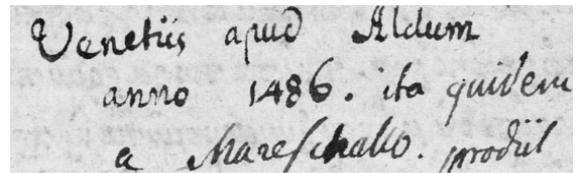 Venetiis apud Aldum
anno 1486. ita quidem
a Mareschallo. prodiit